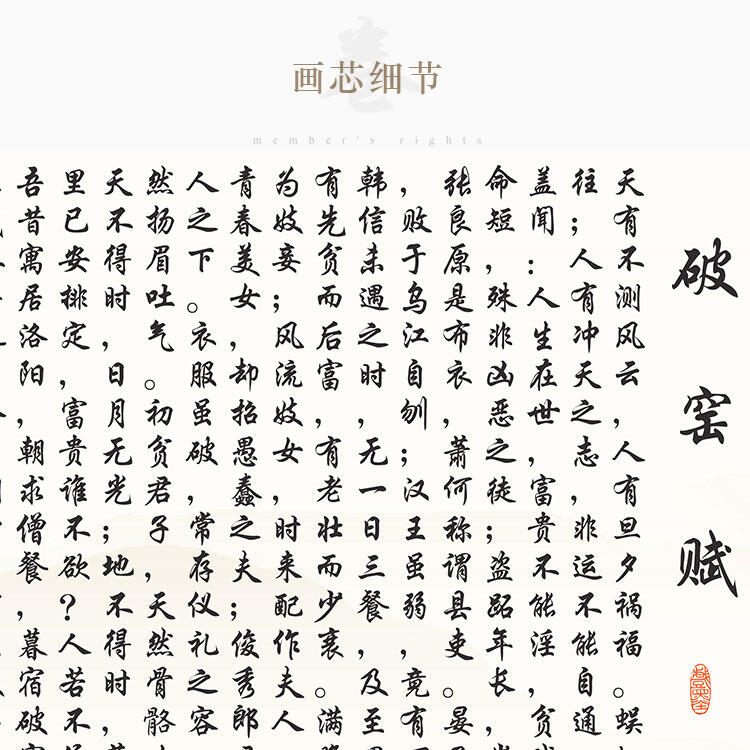 画芯细节
member's rights
破窑赋
天有不测风云，人有旦夕祸福。蜈
往；人有冲天之志，非运不能自通
盖闻：人生在世，富贵不能淫，贫
命短，殊非凶恶之徒；盗跖年长，
张良原是布衣，萧何称谓县吏。晏
，败于乌江自刎；汉王虽弱，竟有
韩信未遇之时，无一日三餐，及至
有先贫而后富，有老壮而少衰。满
为妓妾；风流妓女，时来配作夫人
青春美女，却招愚蠢之夫；俊秀郎
人之下。衣服虽破，常存仪礼之容
然扬眉吐气。初贫君子，天然骨骼
天不得时，日月无光；地不得时，
里已安排定，富贵谁不欲？人若不
吾昔寓居洛阳，朝求僧餐，暮宿破